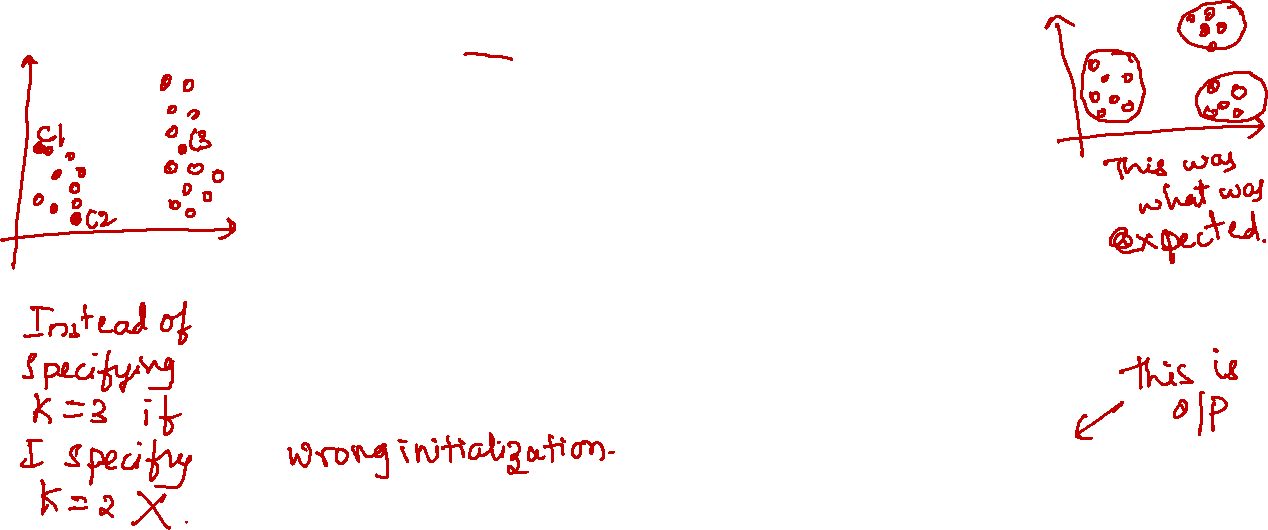 C1
C3
C2
This was
what was
expected.
Instead of
specifying
K=3 if
I specifiy
K=2 X.
wrong initialization.
This is
O/P